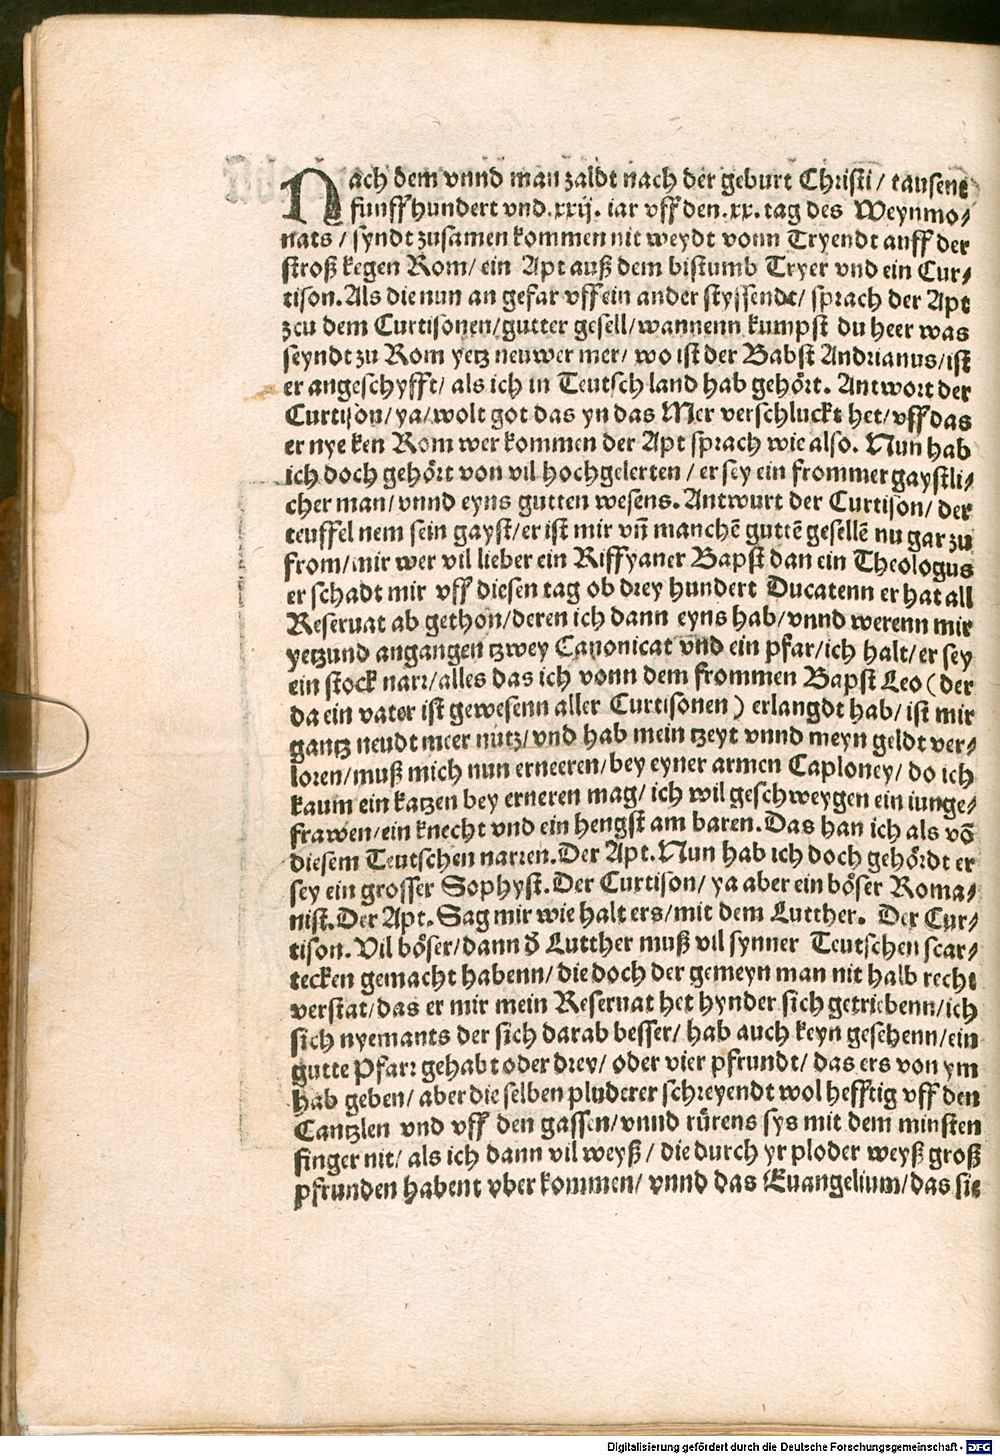 Nach dem vnnd man zaldt nach der geburt Christi/ tausent
funffhundert vnd.xxij. iar vff den.xx. tag des Weynmo⸗
nats/ syndt zusamen kommen nit weydt vonn Tryendt auff der
stroß kegen Rom/ ein Apt auß dem bistumb Tryer vnd ein Cur⸗
tison. Als die nun an gefar vff ein ander styssendt/ sprach der Apt
zcu dem Curtisonen/gutter gesell/wannenn kumpst du heer was
seyndt zu Rom yetz neuwer mer/ wo ist der Babst Andrianus/ist
er angeschyfft/ als ich in Teutsch land hab gehört. Antwort der
Curtison/ ya/wolt got das yn das Mer verschluckt het/vff das
er nye ken Rom wer kommen der Apt sprach wie also. Nun hab
ich doch gehört von vil hochgelerten/ er sey ein frommer gaystli⸗
cher man/vnnd eyns gutten wesens. Antwurt der Curtison/ der
teuffel nem sein gayst/er ist mir vñ manchē guttē gesellē nu gar zu
from/mir wer vil lieber ein Riffyaner Bapst dan ein Theologus
er schadt mir vff diesen tag ob drey hundert Ducatenn er hat all
Reseruat ab gethon/deren ich dann eyns hab/vnnd werenn mir
yetzund angangen tzwey Canonicat vnd ein pfar/ich halt/er sey
ein stock narr/alles das ich vonn dem frommen Bapst Leo (der
da ein vater ist gewesenn aller Curtisonen) erlangdt hab/ist mir
gantz neudt meer nütz/vnd hab mein tzeyt vnnd meyn geldt ver⸗
loren/muß mich nun erneeren/bey eyner armen Caploney/ do ich
kaum ein katzen bey erneren mag/ich wil geschweygen ein iunge⸗
frawen/ein knecht vnd ein hengst am baren. Das han ich als vō
diesem Teutschen narren. Der Apt. Nun hab ich doch gehördt er
sey ein grosser Sophyst. Der Curtison/ ya aber ein böser Roma⸗
nist. Der Apt. Sag mir wie halt ers/mit dem Lutther. Der Cur⸗
tison. Vil böser/dann d̄ Lutther muß vil synner Teutschen scar⸗
tecken gemacht habenn/die doch der gemeyn man nit halb recht
verstat/das er mir mein Reseruat het hynder sich getriebenn/ich
sich nyemants der sich darab besser/ hab auch keyn gesehenn/ein
gutte Pfarr gehabt oder drey/ oder vier pfrundt/ das ers von ym
hab geben/ aber die selben pluderer schreyendt wol hefftig vff den
Cantzlen vnd vff den gassen/vnnd rürens sys mit dem minsten
finger nit/ als ich dann vil weyß/ die durch yr ploder weyß groß
pfrunden habent vber kommen/ vnnd das Euangelium/das sie
Digitalisierung gefördert durch die Deutsche Forschungsgemeinschaft - DFG